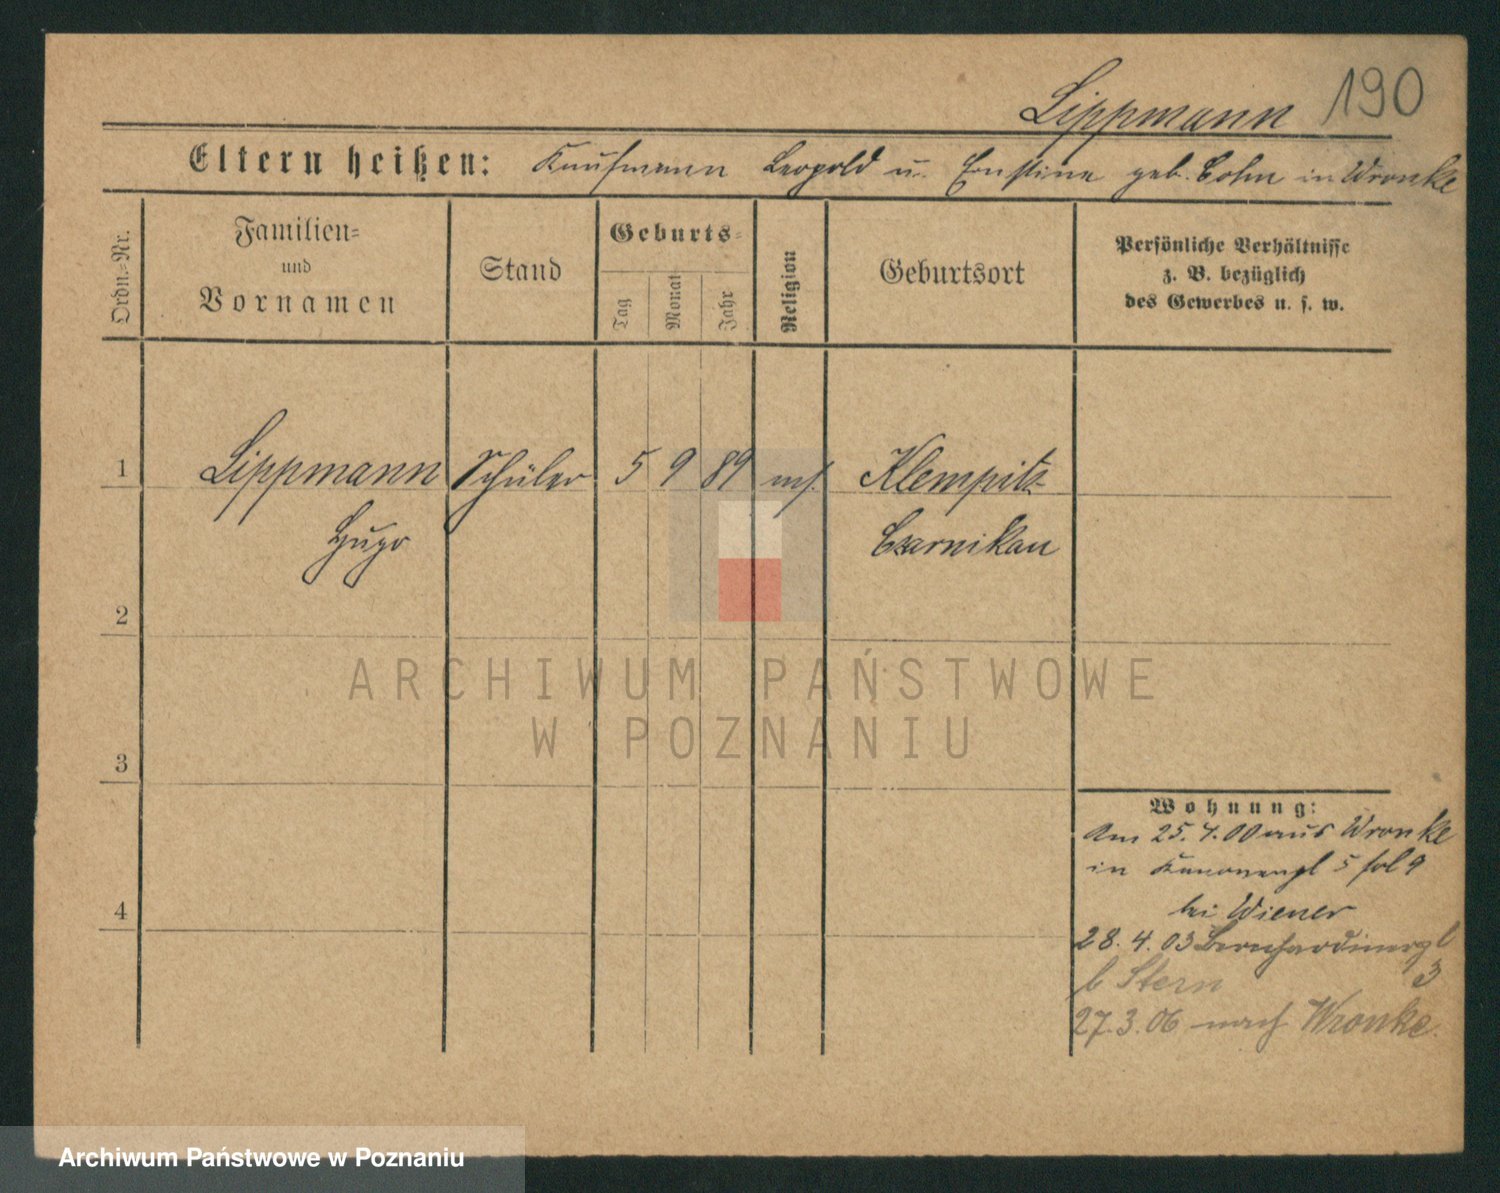 Lippmann 190
Eltern heißen: Kaufmann Leopold u. Ernstine geb. Cohn in Wronke
Ordn.=Nr.
Familien=
und
Vornamen
Stand
Geburts=
Tag
Monat
Jahr
Religion
Geburtsort
Persönliche Verhältnisse
z. B. bezüglich
des Gewerbes u. s. w.
1 Lippmann Schüler 5 9 89 Klempitz
Hugo Czarnikau
2
3
4
Wohnung:
Am 25. 4. 00 aus Wronke
in Kanonenpl 5 fol 9
bei Wiener
28. 4. 03 Bernhardinerpl
3
b Stern
27. 3. 06 nach Wronke.
ARCHIWUM PAŃSTWOWE
W POZNANIU
Archiwum Państwowe w Poznaniu